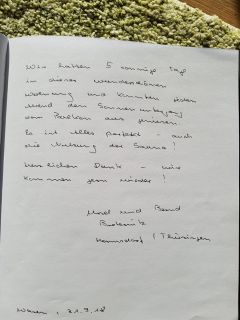 Wir hatten 5 sonnige Tage
in dieser wunderschönen
Wohnung und konnten jeden
Abend den Sonnenuntergang
vom Balkon aus genießen.
Es ist alles perfekt - auch
die Nutzung der Sauna!
Herzlichen Dank - wir
kommen gern wieder!
und Bernd
Hermsdorf / Thüringen
Waren, 21.9.18